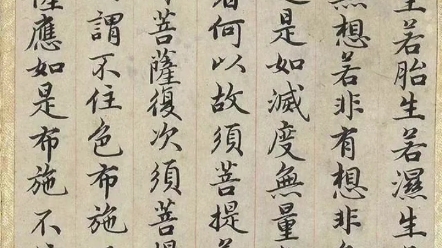 生若胎生若濕生
無想若非有想非
是如滅度無量
者何以故須菩提
菩薩復次須菩提
謂不住色布施
應如是布施不